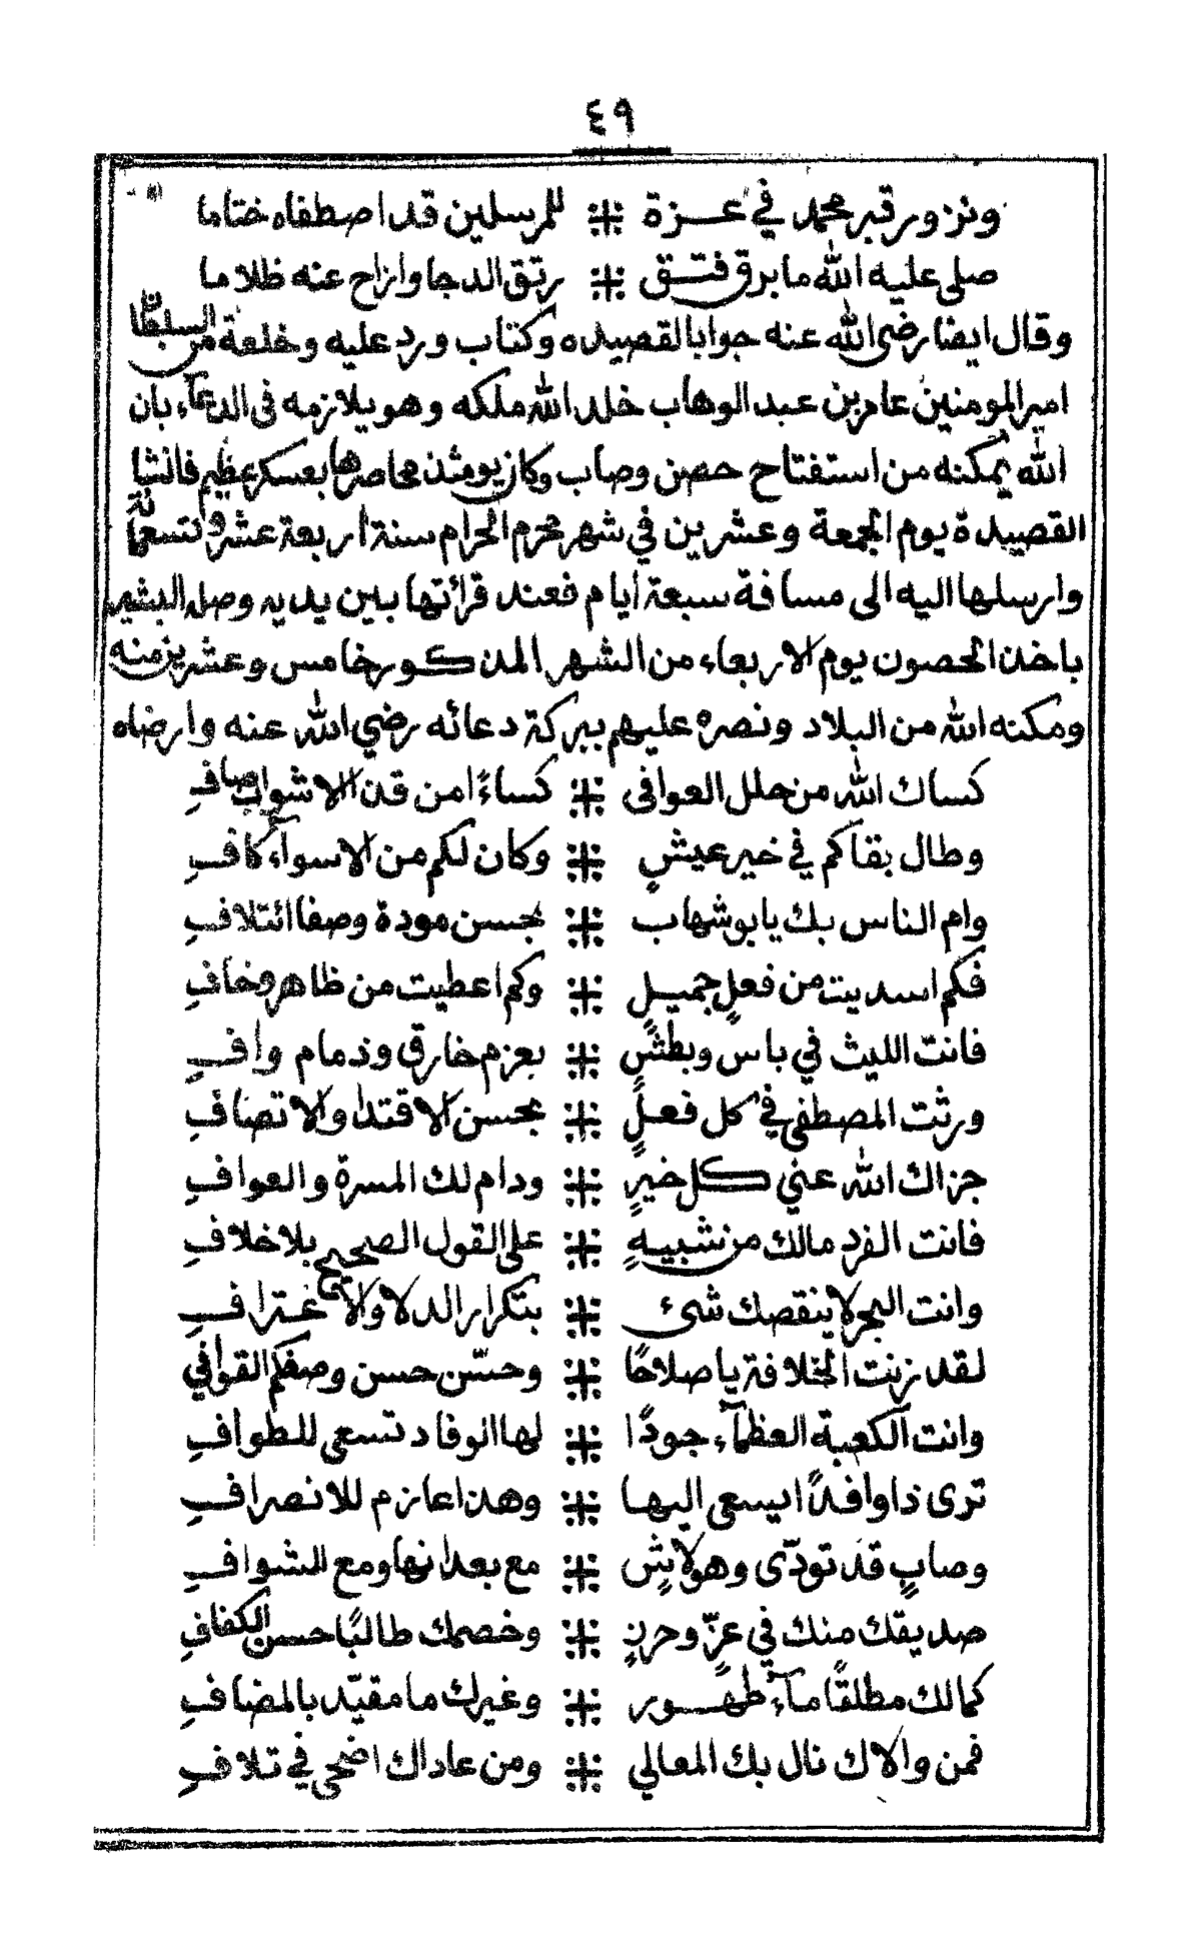 ٤٩
ونزور قبر محمد في عزة ⁜ للمرسلين قد اصطفاه ختاما
صلى عليه الله ما برق فتق ⁜ رتق الدجا وازاح عنه ظلاما
وقال ايضا رضى الله عنه جوابا لقصيده وكتاب ورد عليه وخلعة من السلطان
امير المومنين عامر بن عبد الوهاب خلد الله ملكه وهو يلازمه فى الدعآء بان
الله يمكنه من استفتاح حصن وصاب وكان يومئذ محاصرها بعسكر عظيم فانشا
القصيدة يوم الجمعة وعشرين في شهر محرم الحرام سنة اربعة عشر وتسعمائة
وارسلها اليه الى مسافة سبعة ايام فعند قرائتها بين يديه وصله البشير
باخذ الحصون يوم الاربعاء من الشهر المذكور خامس وعشرين منه
ومكنه الله من البلاد ونصره عليهم ببركة دعائه رضي الله عنه وارضاه
كساك الله من حلل العوافى ⁜ كساءً امن قذن الاشواب صافِ
وطال بقاكم في خير عيشٍ ⁜ وكان لكم من الاسوآء كافِ
وام الناس بك يابو شهاب ⁜ بحسن مودة وصفا ائتلافِ
فكم اسديت من فعلٍ جميلٍ ⁜ وكم اعطيت من ظاهر وخافِ
فانت الليث في باس وبطشٍ ⁜ بعزم خارق وذمام وافِ
ورثت المصطفى في كل فعلٍ ⁜ بحسن الاقتدا والاتصافِ
جزاك الله عني كل خيرٍ ⁜ ودام لك المسرة والعوافِ
فانت الفرد مالك من شبيهٍ ⁜ على القول الصحيح بلا خلافِ
وانت البحر لا ينقصك شىء ⁜ بتكرار الدلا والاغترافِ
لقد زنت الخلافة يا صلاحًا ⁜ وحسّن حسن وصفكم القوافي
وانت الكعبة العظمآء جودًا ⁜ لها الوفاد تسعى للطوافِ
ترى ذا وافدًا يسعى اليها ⁜ وهذا عازم للانصرافِ
وصابٍ قد تودّى وهولاشٍ ⁜ مع بعدانها ومع الشوافِ
صديقك منك في عزّ وحرزٍ ⁜ وخصمك طالبًا حسن الكفافِ
كمالك مطلقًا مآء طهور ⁜ وغيرك ما مقيّد بالمضافِ
فمن والاك نال بك المعالي ⁜ ومن عاداك اضحى في تلافِ